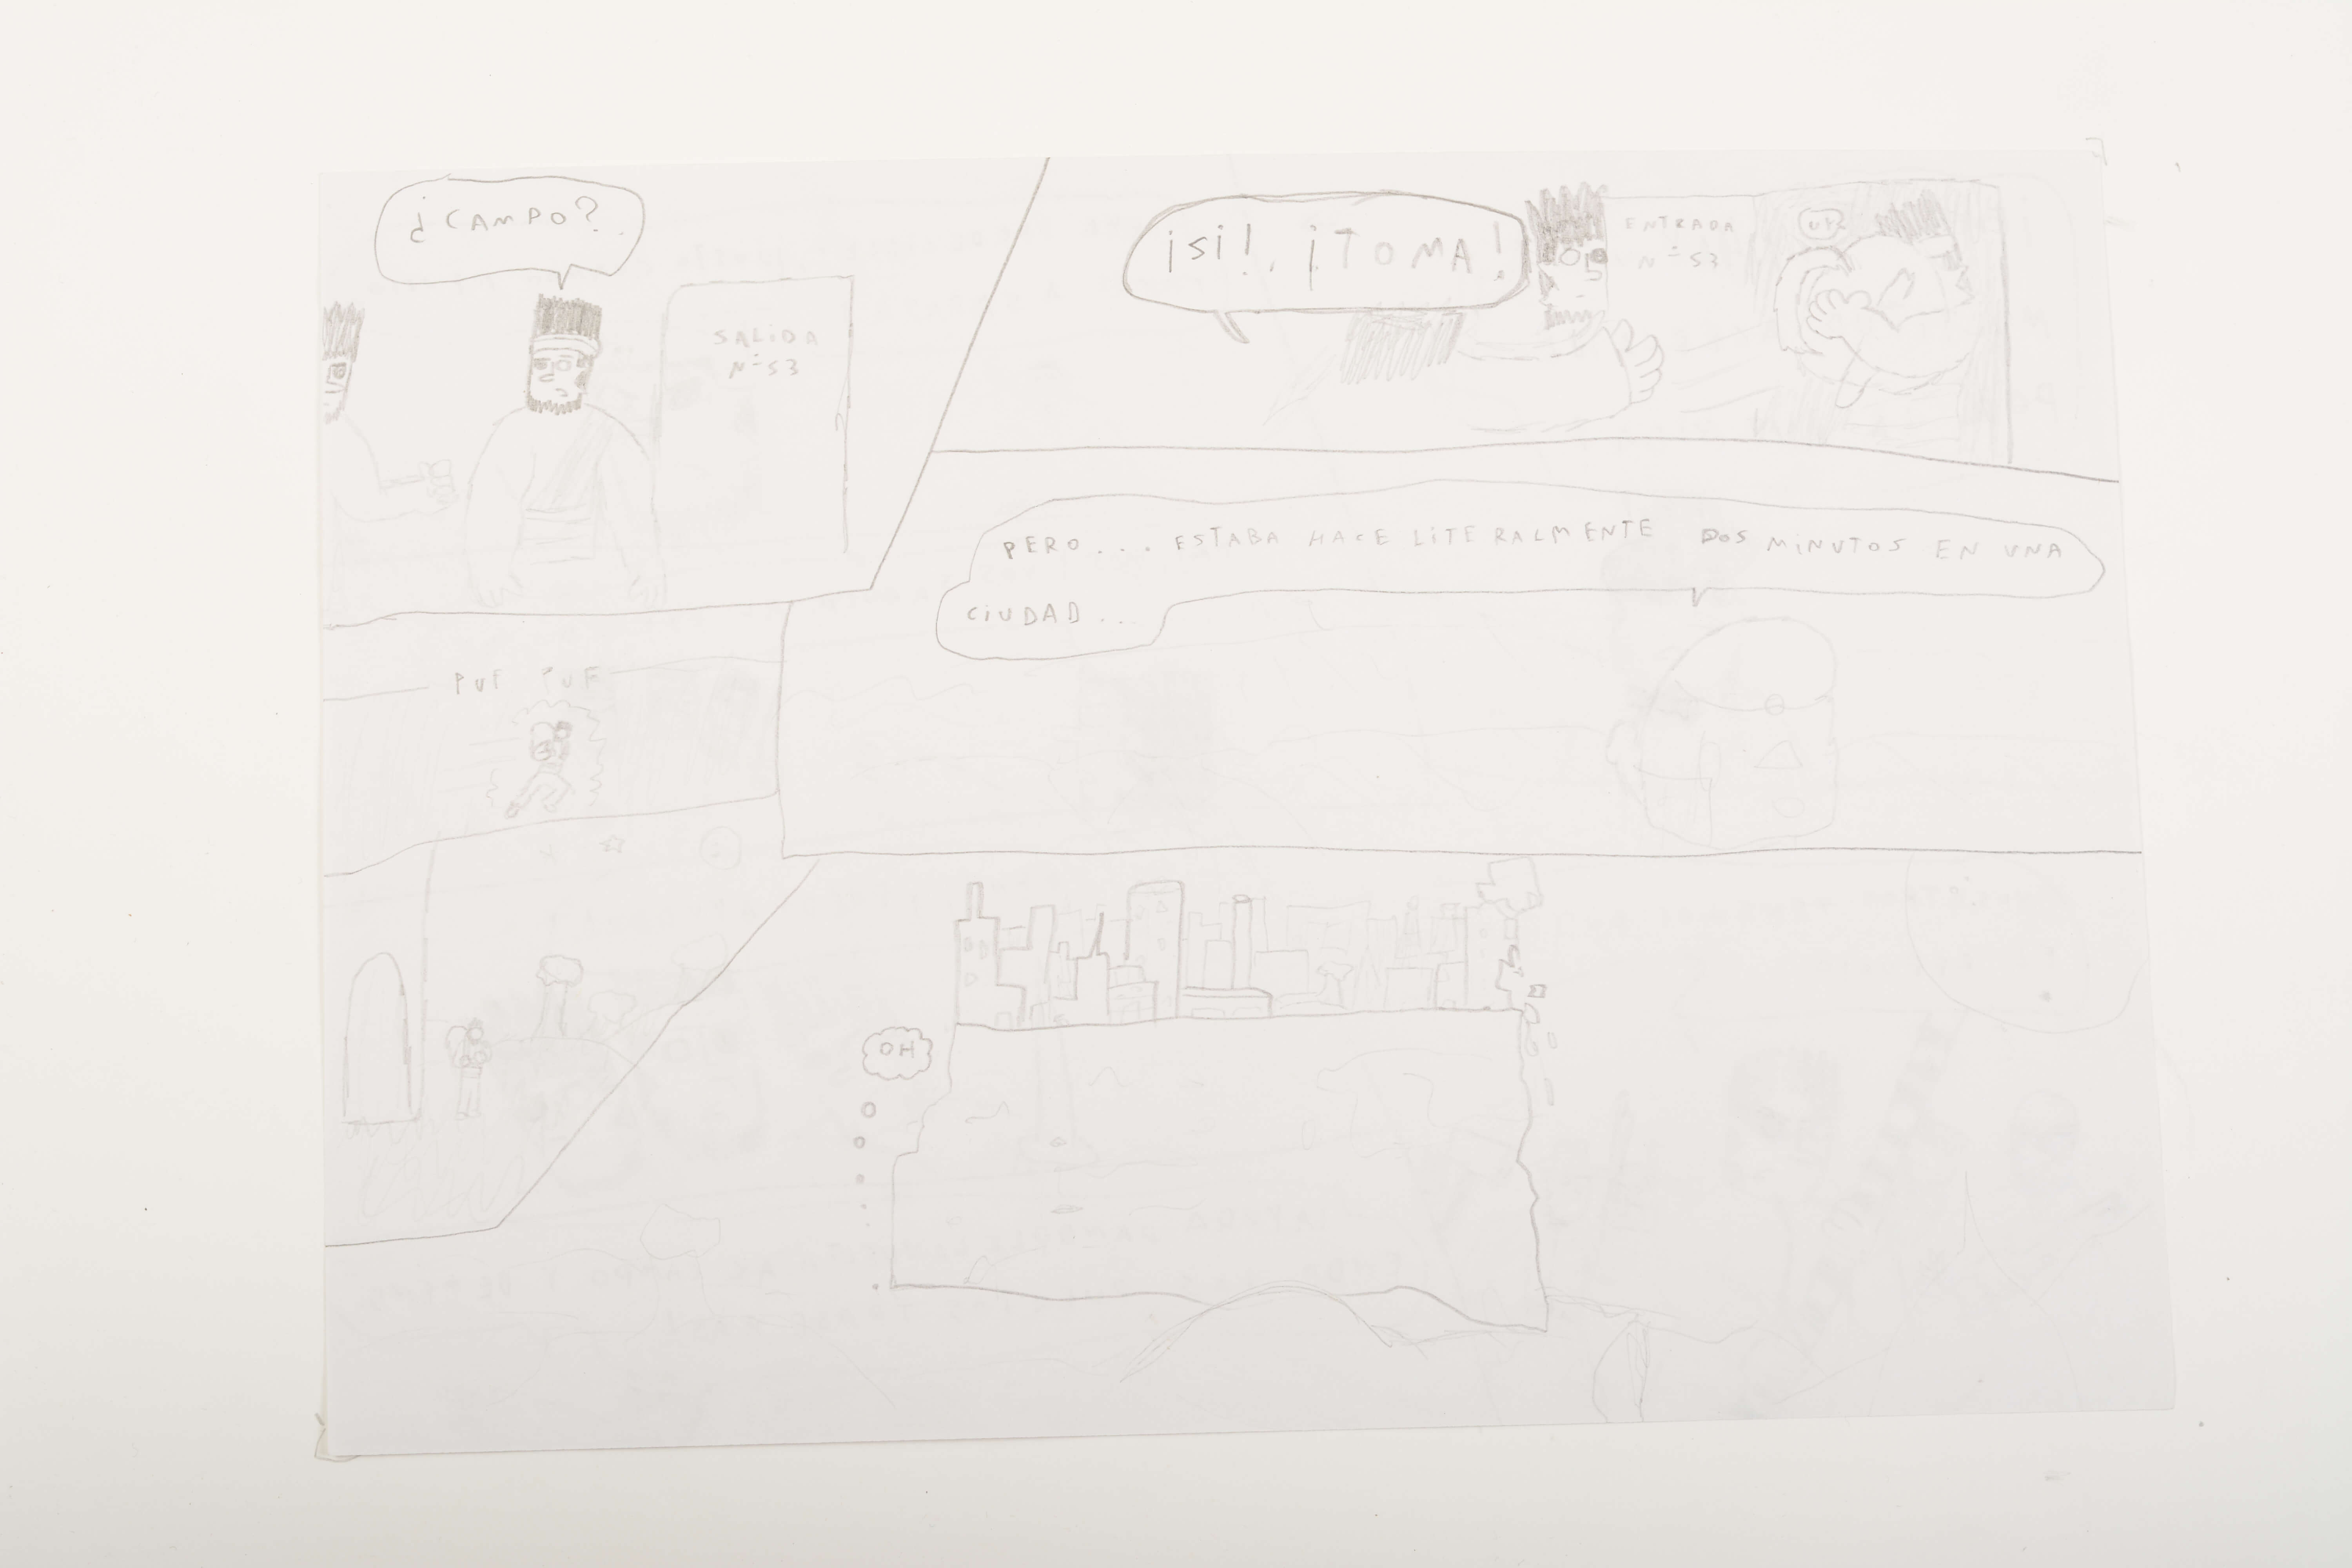 ¿CAMPO?
SALIDA
Nº 53
¡Si!, ¡TOMA!
ENTRADA
Nº 53
UF
PERO... ESTABA HACE LITERALMENTE DOS MINUTOS EN UNA
CIUDAD...
PUF PUF
OH